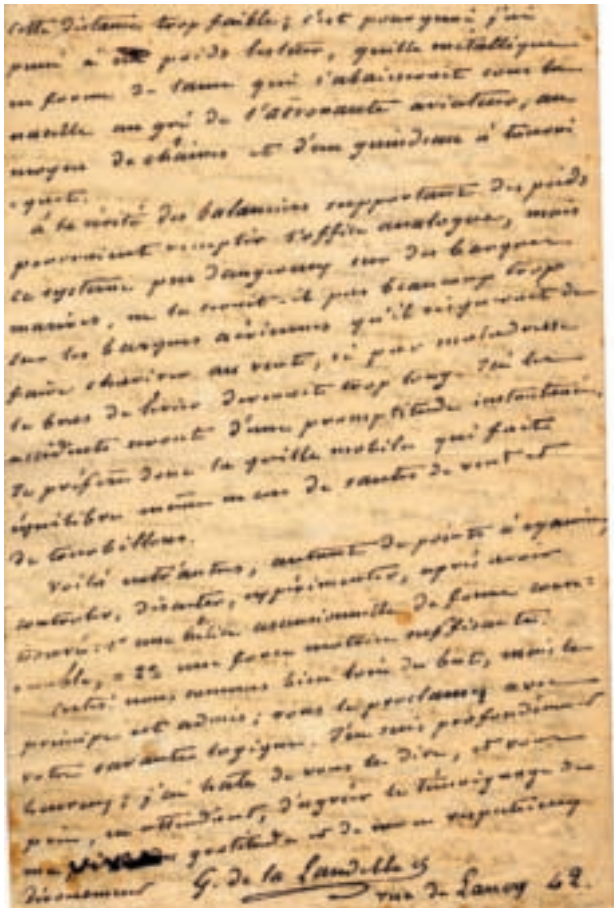 cette distance trop faible; c'est pourquoi j'ai
pensé à un poids lesteur, quille métallique
en forme de lame qui s'abaisserait sous la
nacelle au gré de l'aéronaute aviateur, au
moyen de chaînes et d'un guindeau à
quet.
à la vérité des balanciers supportant des poids
pourraient remplir l'office analogue, mais
ce système peu dangereux sur des barques
marines, ne le serait-il pas beaucoup trop
sur les barques aériennes qu'il risquerait de
faire chavirer au vent, si par maladresse
le bras de levier devenait trop long. Ici les
accidents seront d'une promptitude instantanée.
Je préfère donc la quille mobile qui fait
équilibre même en cas de sautes de vent et
de tourbillons.
Voilà entr'autres, autant de points à
controler, discuter, expérimenter, après avoir
trouvé: 1º une hélice ascensionnelle de forme conve=
nable, = 2º une force motrice suffisante.
Certes! nous sommes bien loin du but, mais le
principe est admis; vous le proclamez avec
votre savante logique. J'en suis profondément
heureux; j'ai hâte de vous le dire, et vous
prie, en attendant, d'agréer le témoignage de
ma gratitude et de mon respectueux
dévouement G. de la Landelle
rue de Lancry 42.